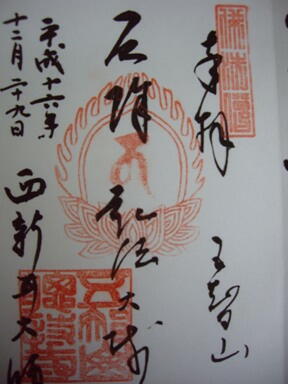 奉拝
五智山
厄除 弘法大師
平成十六年
十二月二十九日
西新井大師